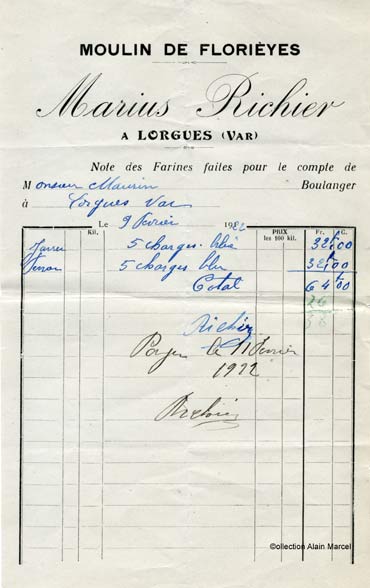 MOULIN DE FLORIÈYES
Marius Richier
A LORGUES (VAR)
Note des Farines faites pour le compte de
Monsieur Maurin Boulanger
à Lorgues Var
Le 9 fevrier 192
Kil. PRIX les 100 kil. Fr. C.
5 charges blé 32,00
5 charges blé 32,00
Total 64,00
Richier
Payer le 11 Fevrier
1922
Richier
©ollection Alain Marcel